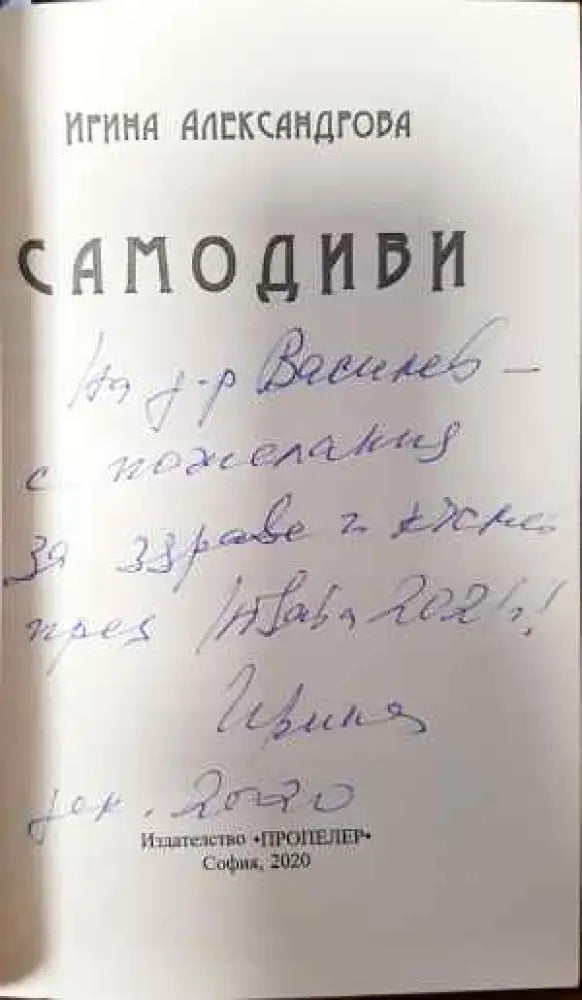 ИРИНА АЛЕКСАНДРОВА
САМОДИВИ
На д-р Василев –
с пожелания
за здраве и
през Новата 2021 г.!
Ирина
дек. 2020
Издателство •ПРОПЕЛЕР•
София, 2020